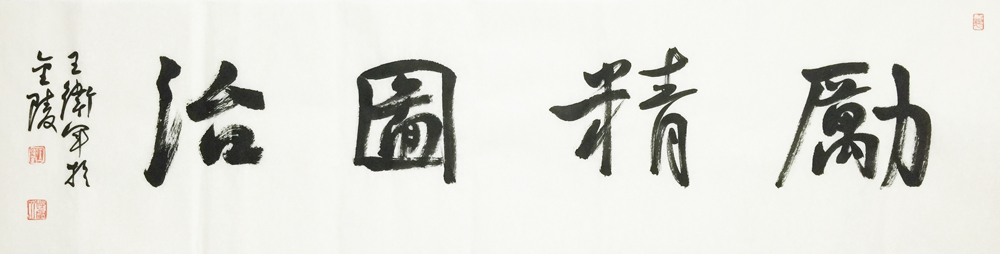 勵精圖治
王衛軍於
金陵